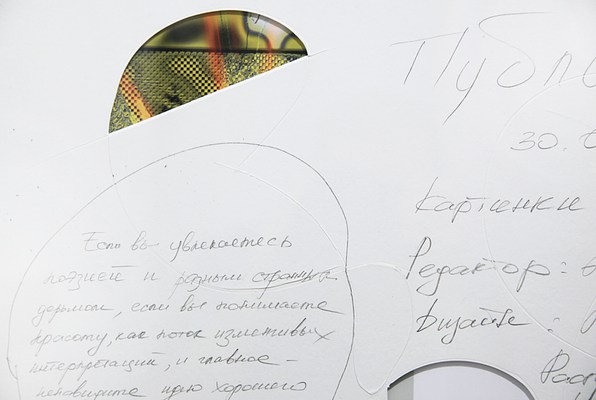 Если вы увлекаетесь
поэзией и разным странным
дерьмом, если вы понимаете
красоту, как поток изменчивых
интерпретаций, и главное -
ненавидите идею хорошего
Публи
30.
Картинки
Редактор:
Дизайн: